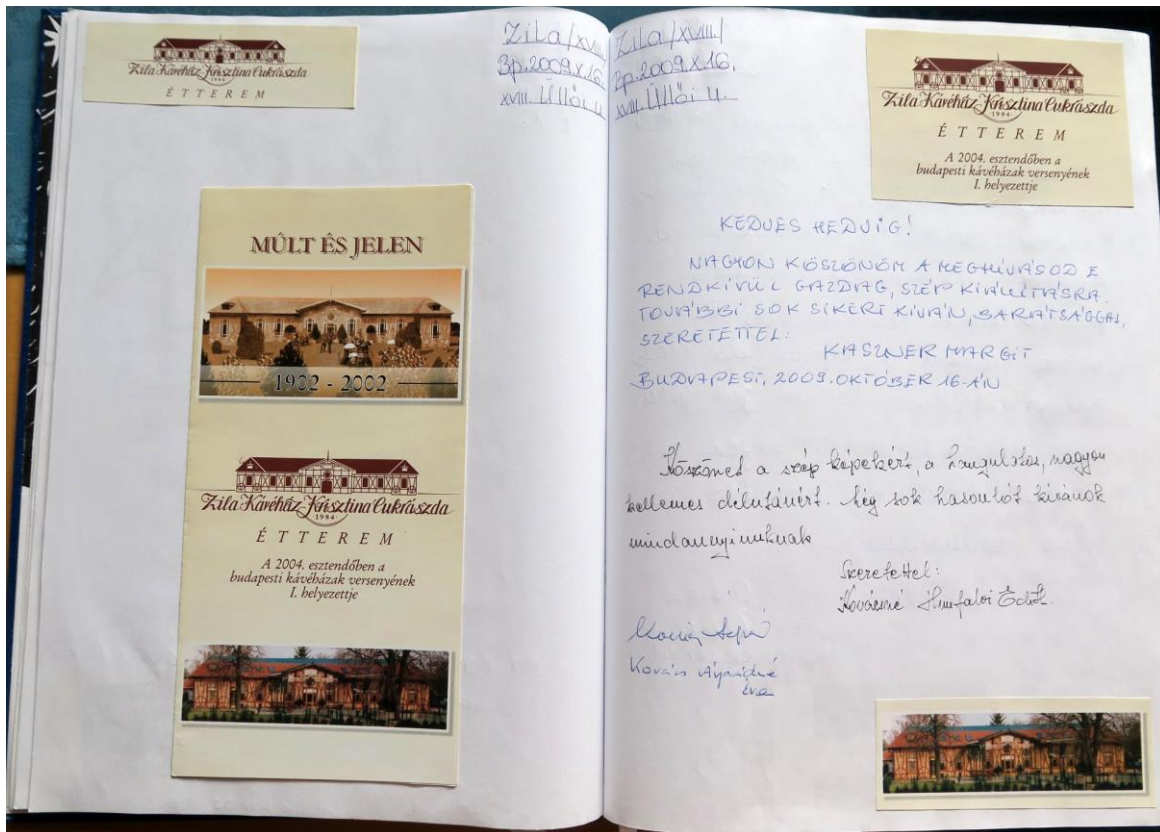 Zila Kávéház Krisztina Cukrászda
1984
ÉTTEREM
Zila/XVIII/
Bp.2009.X.16.
XVIII. Üllői u.
MÚLT ÉS JELEN
1902 - 2002
Zila Kávéház Krisztina Cukrászda
1984
ÉTTEREM
A 2004. esztendőben a
budapesti kávéházak versenyének
I. helyezettje
Zila/XVIII/
Bp.2009.X.16.
XVIII. Üllői u.
Zila Kávéház Krisztina Cukrászda
1984
ÉTTEREM
A 2004. esztendőben a
budapesti kávéházak versenyének
I. helyezettje
KEDVES HEDVIG!
NAGYON KÖSZÖNÖM A MEGHÍVÁSOD E
RENDKÍVÜL GAZDAG, SZÉP KIÁLLÍTÁSRA.
TOVÁBBI SOK SIKERT KÍVÁN, BARÁTSÁGGAL,
SZERETETTEL:
KASZNER MARGIT
BUDAPEST, 2009. OKTÓBER 16-ÁN
Köszönet a szép képekért, a hangulatos, nagyon
kellemes délutánért. Még sok hasonlót kívánok
mindannyiunknak
Szeretettel:
Kovácsné Hunfalvi Edit.
Kovács Árpádné